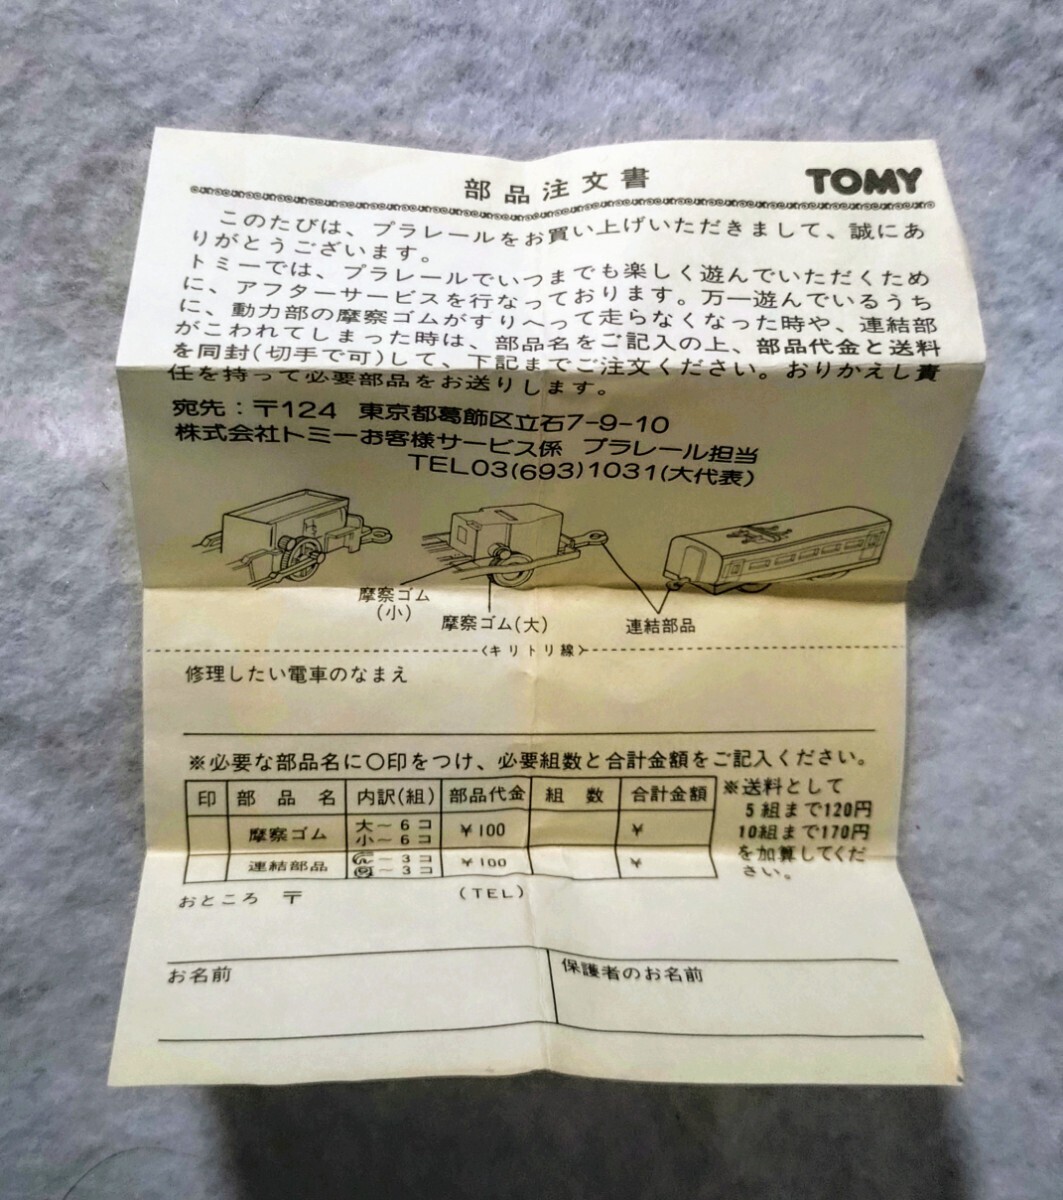 部品注文書
TOMY
このたびは、プラレールをお買い上げいただきまして、誠にあ
りがとうございます。
トミーでは、プラレールでいつまでも楽しく遊んでいただくため
に、アフターサービスを行なっております。万一遊んでいるうち
に、動力部の摩察ゴムがすりへって走らなくなった時や、連結部
がこわれてしまった時は、部品名をご記入の上、部品代金と送料
を同封(切手で可)して、下記までご注文ください。おりかえし責
任を持って必要部品をお送りします。
宛先:〒124 東京都葛飾区立石7-9-10
株式会社トミーお客様サービス係 プラレール担当
TEL03(693)1031(大代表)
摩察ゴム
(小)
摩察ゴム(大)
連結部品
<キリトリ線>
修理したい電車のなまえ
※必要な部品名に〇印をつけ、必要組数と合計金額をご記入ください。
印 部品名 内訳(組) 部品代金 組数 合計金額
摩察ゴム 大~6コ 小~6コ ¥100 ¥
連結部品 ~3コ ~3コ ¥100 ¥
※送料として
5組まで120円
10組まで170円
を加算してくだ
さい。
おところ 〒 (TEL)
お名前
保護者のお名前